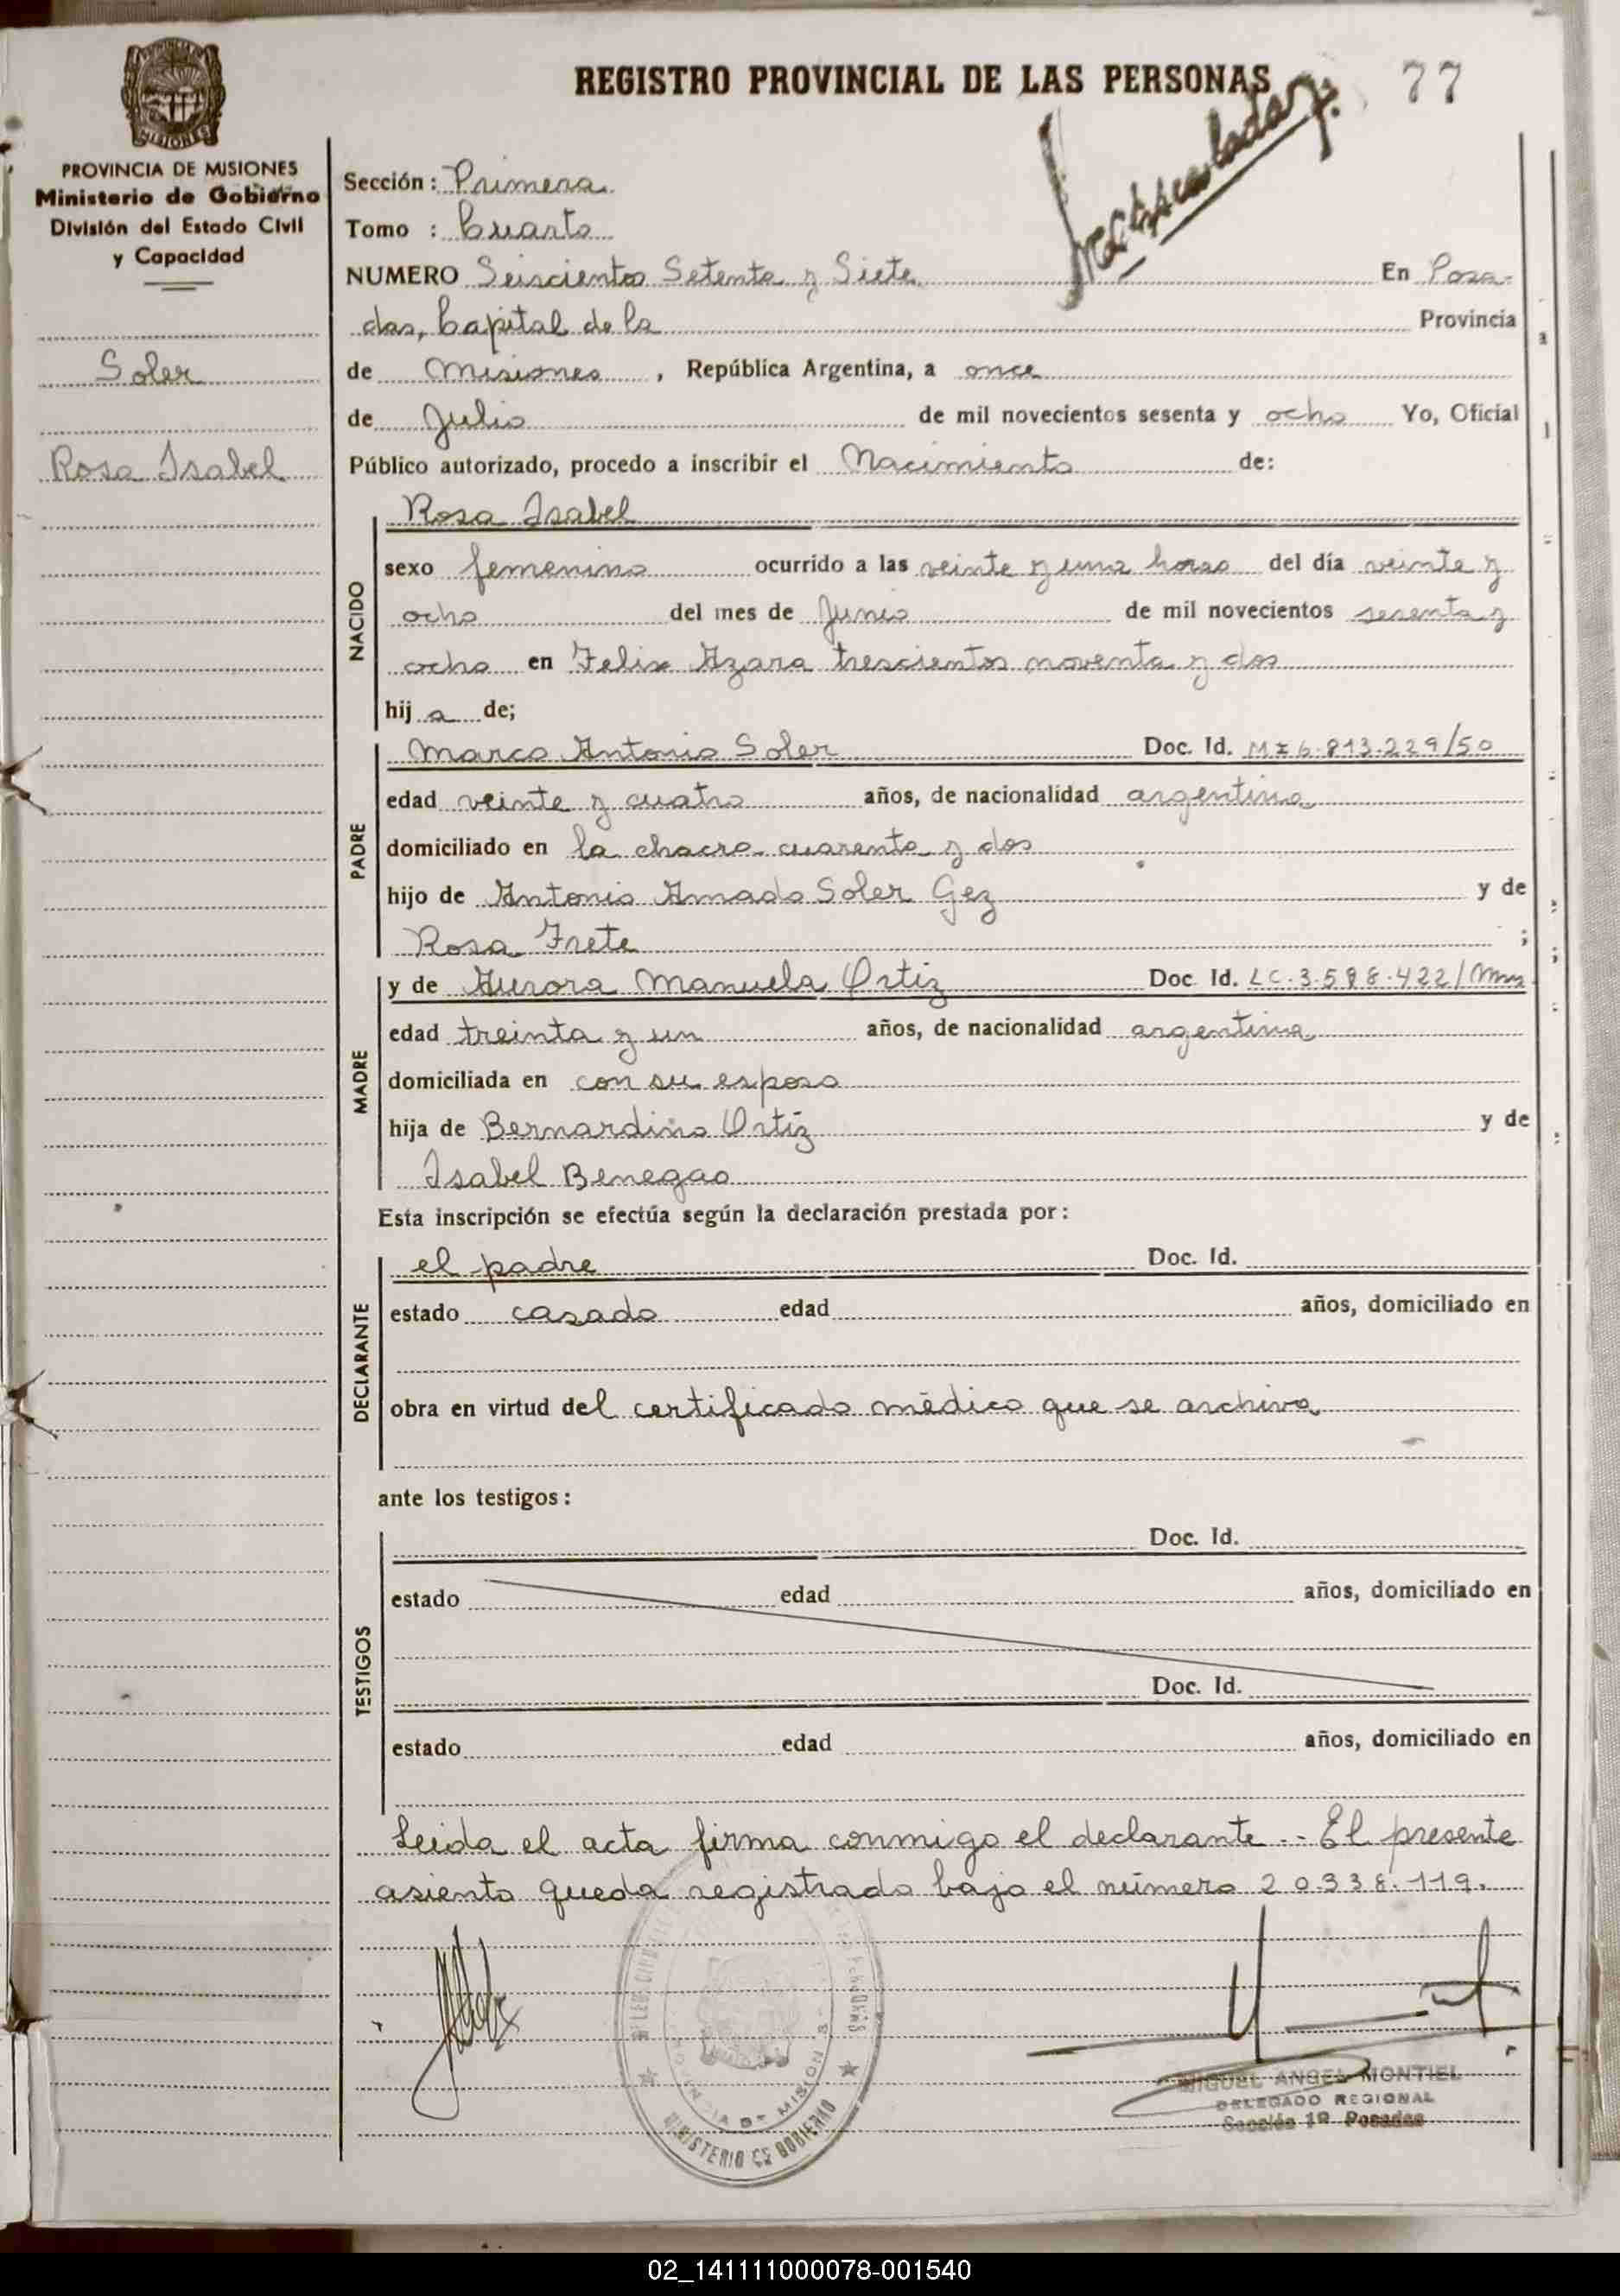 REGISTRO PROVINCIAL DE LAS PERSONAS
77
PROVINCIA DE MISIONES
Ministerio de Gobierno
División del Estado Civil
y Capacidad
Soler
Rosa Isabel
Sección: Primera
Tomo : Cuarto
NUMERO Seiscientos Setenta y Siete En Posa-
das, Capital de la Provincia
de Misiones, República Argentina, a once
de Julio de mil novecientos sesenta y ocho Yo, Oficial
Público autorizado, procedo a inscribir el Nacimiento de:
NACIDO
Rosa Isabel
sexo femenino ocurrido a las veinte y una horas del día veinte y
ocho del mes de Junio de mil novecientos sesenta y
ocho en Felix Azara trescientos noventa y dos
hija de;
PADRE
Marco Antonio Soler Doc. Id. MI 6.813.229/50
edad veinte y cuatro años, de nacionalidad argentina
domiciliado en la chacra cuarenta y dos
hijo de Antonio Amado Soler Gez y de
Rosa Frete ;
MADRE
y de Aurora Manuela Ortiz Doc Id. LC.3.598.422/
edad treinta y un años, de nacionalidad argentina
domiciliada en con su esposo
hija de Bernardino Ortiz y de
Isabel Benegas
Esta inscripción se efectúa según la declaración prestada por:
DECLARANTE
el padre Doc. Id.
estado casado edad años, domiciliado en
obra en virtud del certificado médico que se archiva
ante los testigos:
TESTIGOS
Doc. Id.
estado edad años, domiciliado en
Doc. Id.
estado edad años, domiciliado en
Leida el acta firma conmigo el declarante.- El presente
asiento queda registrado bajo el número 20.338.119.
PROVINCIA DE MISIONES
MINISTERIO DE GOBIERNO
MIGUEL ANGEL MONTIEL
DELEGADO REGIONAL
Sección 1ª Posadas
02_141111000078-001540